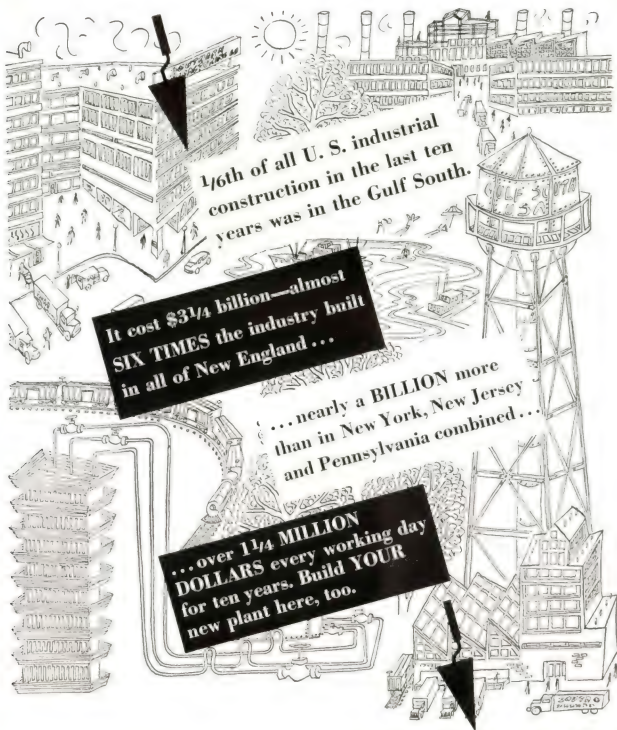 1/6th of all U. S. industrial
construction in the last ten
years was in the Gulf South.
GULF SOUTH
It cost $3 1/4 billion—almost
SIX TIMES the industry built
in all of New England...
...nearly a BILLION more
than in New York, New Jersey
and Pennsylvania combined...
...over 1 1/4 MILLION
DOLLARS every working day
for ten years. Build YOUR
new plant here, too.